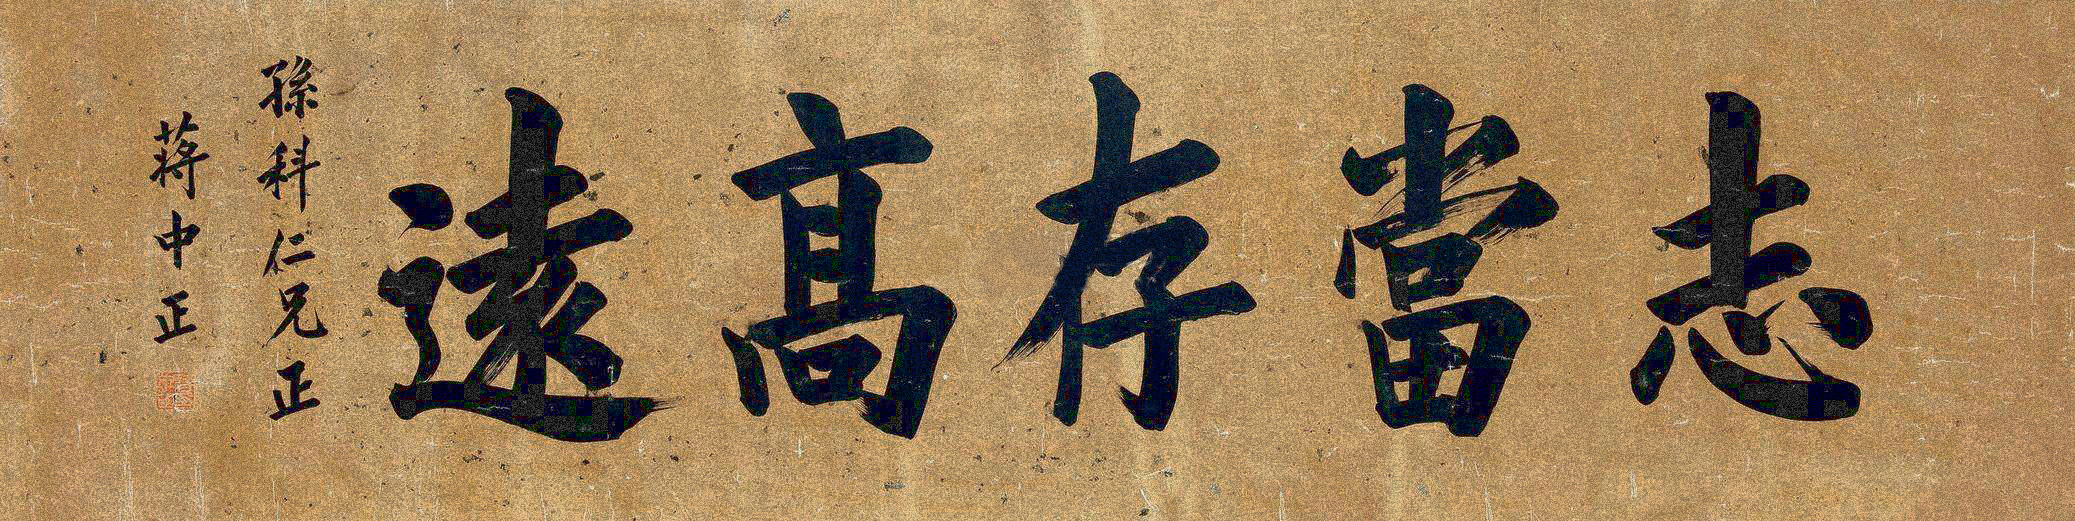 志當存高遠
孫科仁兄正
蔣中正